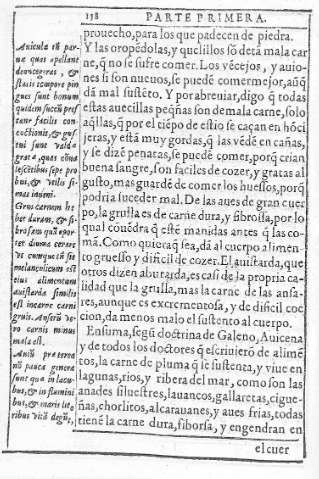 138 PARTE PRIMERA.
Auicula tñ par-
gust bonum
quædam succũ præs-
tant facilis con-
coctionis, & gus-
tui sunt valdè
grata, quas cõma
Gros carnem ha
ber duram, & fi-
brosam quã opor
tet diuma cerare
vt cumque tñ sit
melancolicum est
eius alimentum
Austarda similis
est incarne carni
gruis. Anserũ ve-
ro carnis minus
mala est.
Aues præterea
nõ paucæ genera
sunt quæ in lacu-
bus, & in flumini
bus, & maris lit-
toribus vitã degũt,
prouecho, para los que padecen de piedra.
Y las oropẽdolas, y quclillos sõ de tã mala car
ne, q̃ no se sufre comer. Los vẽcejos, y auio-
nes si son nueuos, se puede comer mejor, aũq̃
dã mal sustẽto. Y por abreuiar, digo q̃ todas
estas auecillas peq̃ñas son de mala carne, solo
aq̃llas, q̃ por el tiẽpo de estio se caçan en hõci
jeras, y está muy gordas, q̃ las vẽde en cañas,
y se dizẽ penatas, se puedẽ comer, porq̃ crian
buena sangre, son faciles de cozer, y gratas al
gusto, mas guardẽse comer los huessos, porq̃
podria suceder mal. De las aues de gran cuer
po, la grulla es de carne dura, y fibrosa, por lo
qual conuẽdra q̃ estẽ manidas antes q̃ las co-
mã. Como quiera q̃ sea, dá al cuerpo alimen-
to gruesso y dificil de cozer. El auitarda, que
otros dizen abutarda, es casi de la propria ca-
lidad que la grulla, mas la carne de las ansa-
res, aunque es excrementosa, y de dificil coc
cion, da menos malo el sustento al cuerpo.
En suma, segũ doctrina de Galeno, Auicena
y de todos los doctores q̃ escriuierõ de alimẽ
tos, la carne de pluma q̃ se sustenta, y viue en
lagunas, rios, y ribera del mar, como son las
anades siluestres, lauancos, gallaretas, cigue-
ñas, chorlitos, alcarauanes, y aues frias, todas
tienẽ la carne dura, fibrosa, y engendran en
el cuer